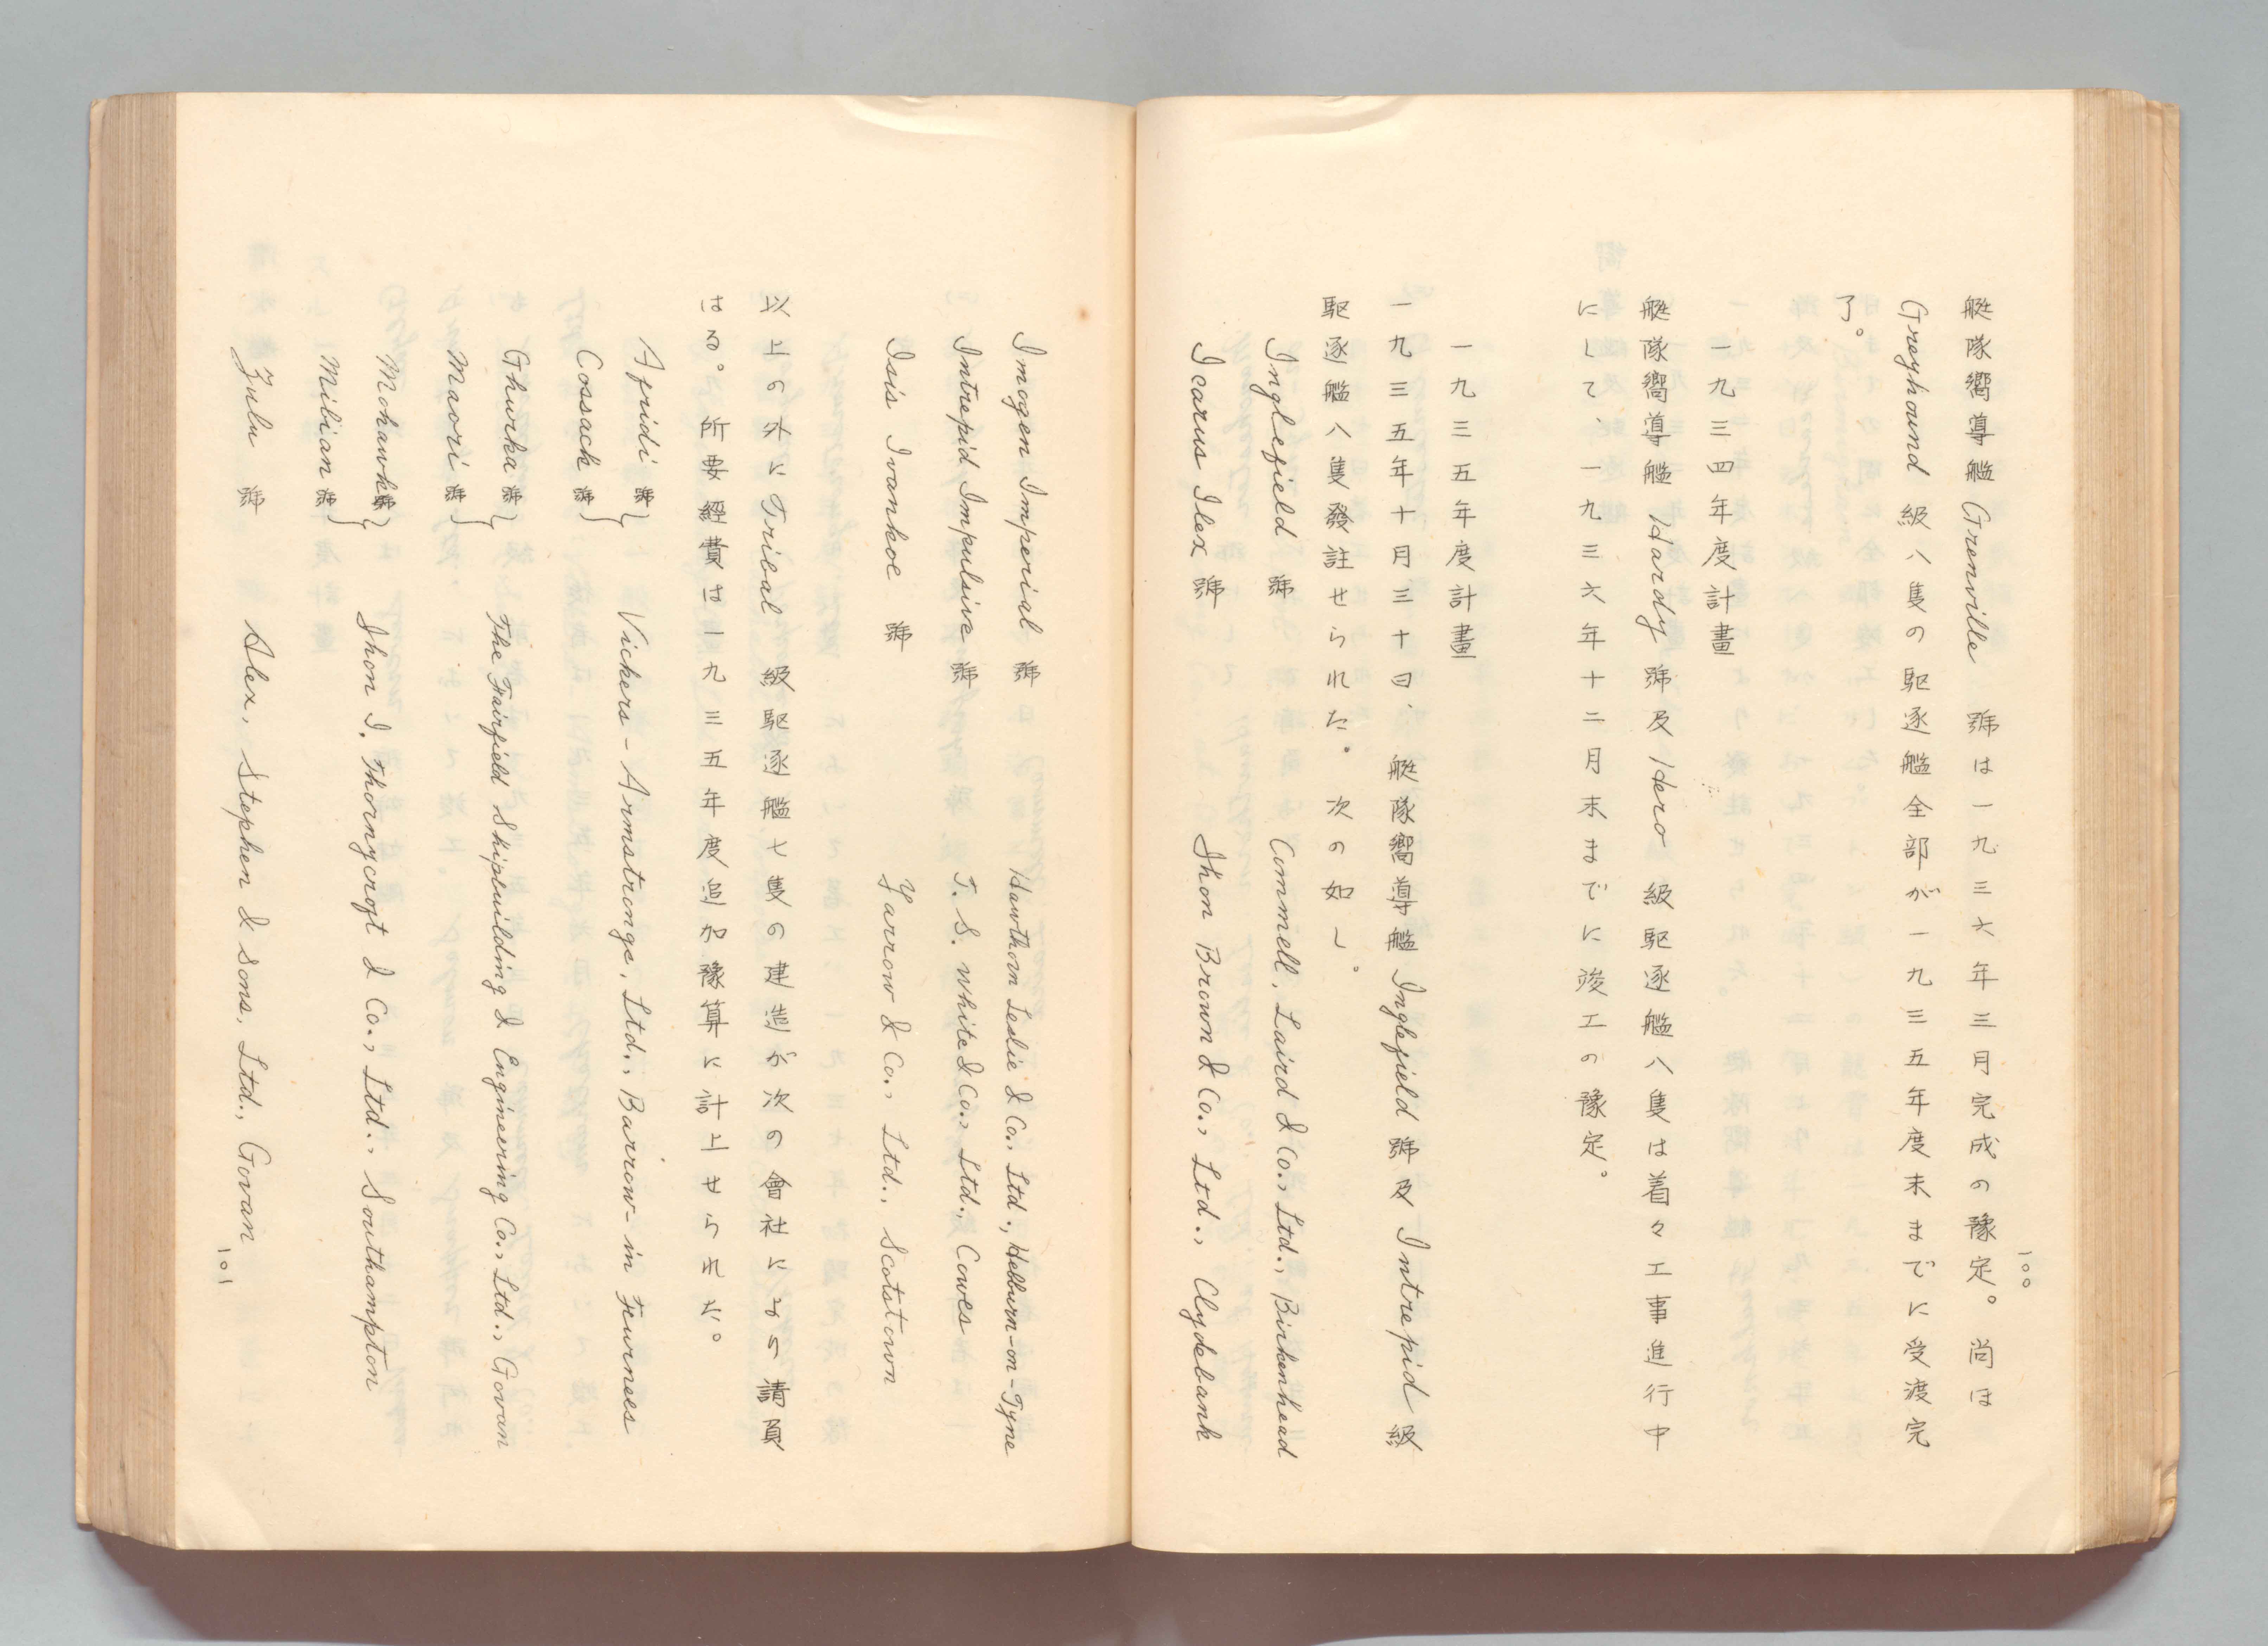 艇隊嚮導艦 Grenville 號は一九三六年三月完成の豫定。尚ほ
Greyhound 級八隻の駆逐艦全部が一九三五年度末までに受渡完
了。
一九三四年度計畫
艇隊嚮導艦 Hardy 號及 Hero 級駆逐艦八隻は着々工事進行中
にして、一九三六年十二月末までに竣工の豫定。
一九三五年度計畫
一九三五年十月三十日、艇隊嚮導艦 Inglefield 號及 Intrepid 級
駆逐艦八隻發註せられた。次の如し。
Inglefield 號 Cammell, Laird & Co., Ltd., Birkenhead
Icarus Ilex 號 Jhon Brown & Co., Ltd., Clydebank
一〇〇
Imogen Imperial 號 Hawthorn Leslie & Co., Ltd., Hebburn-on-Tyne
Intrepid Impulsive 號 J. S. White & Co., Ltd., Cowes
Isis Ivanhoe 號 Yarrow & Co., Ltd., Scotstown
以上の外に Tribal 級駆逐艦七隻の建造が次の會社により請負
はる。所要經費は一九三五年度追加豫算に計上せられた。
Afridi 號
Cossack 號 } Vickers-Armstronge, Ltd., Barrow-in Feurnes
Ghurka 號
Maori 號 } The Fairfield Shipbuilding & Engineering Co., Ltd., Govan
Mohawk 號
Mibian 號 } Jhon I. Thornycroft & Co., Ltd., Southampton
Zulu 號 Alex, Stephen & Sons, Ltd., Govan
一〇一